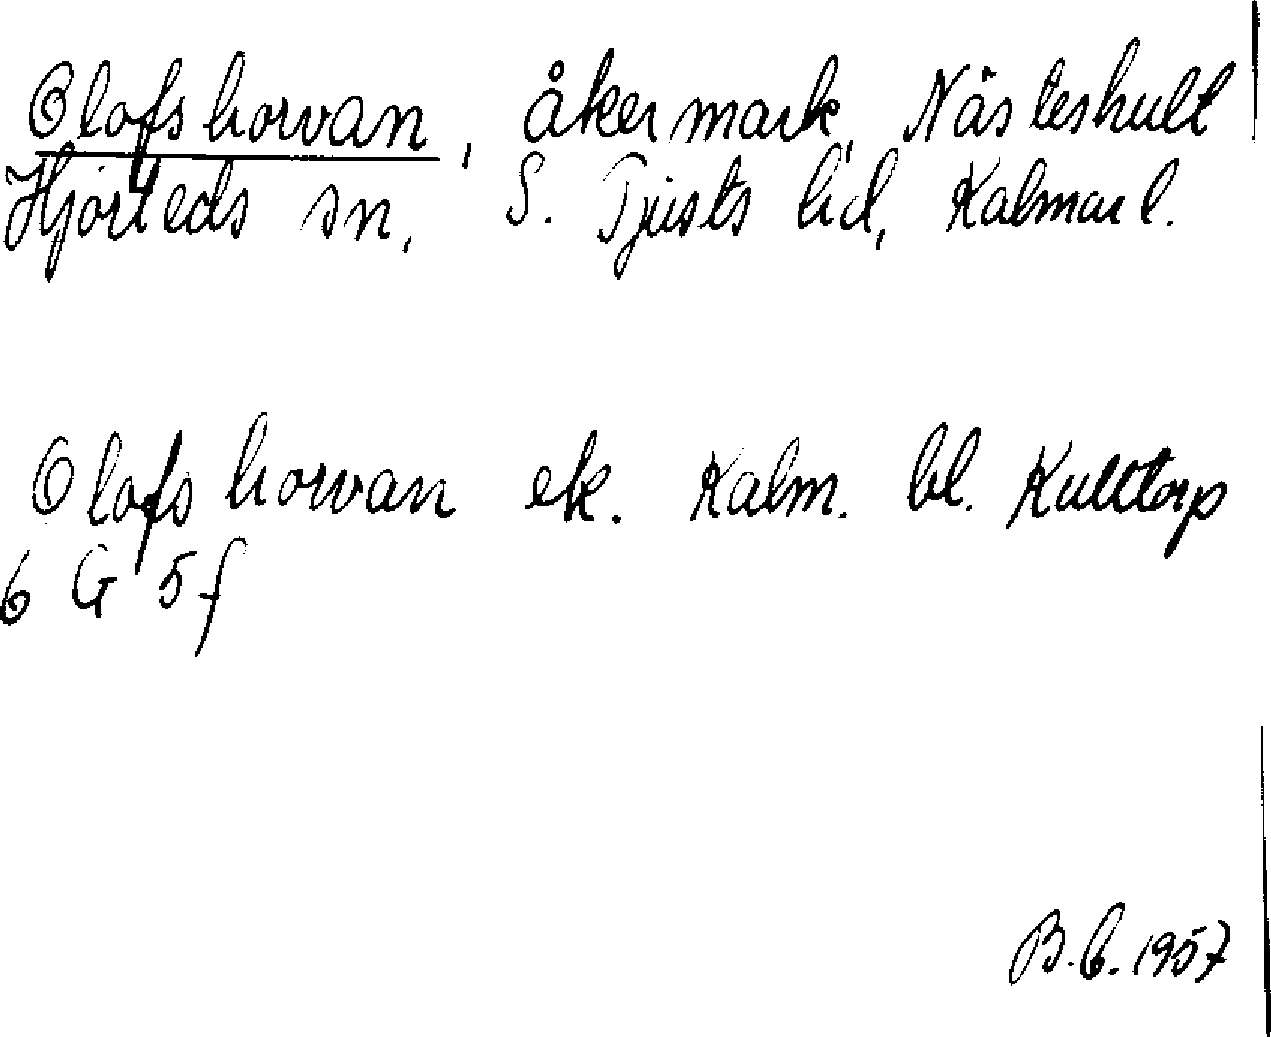 Olofshorvan, åkermark, Nästeshult
Hjorteds sn, S. Tjusts hd, Kalmar l.
Olofshorvan ek. Kalm. bl. Kulltorp
6 G 5 f
B.C. 1957